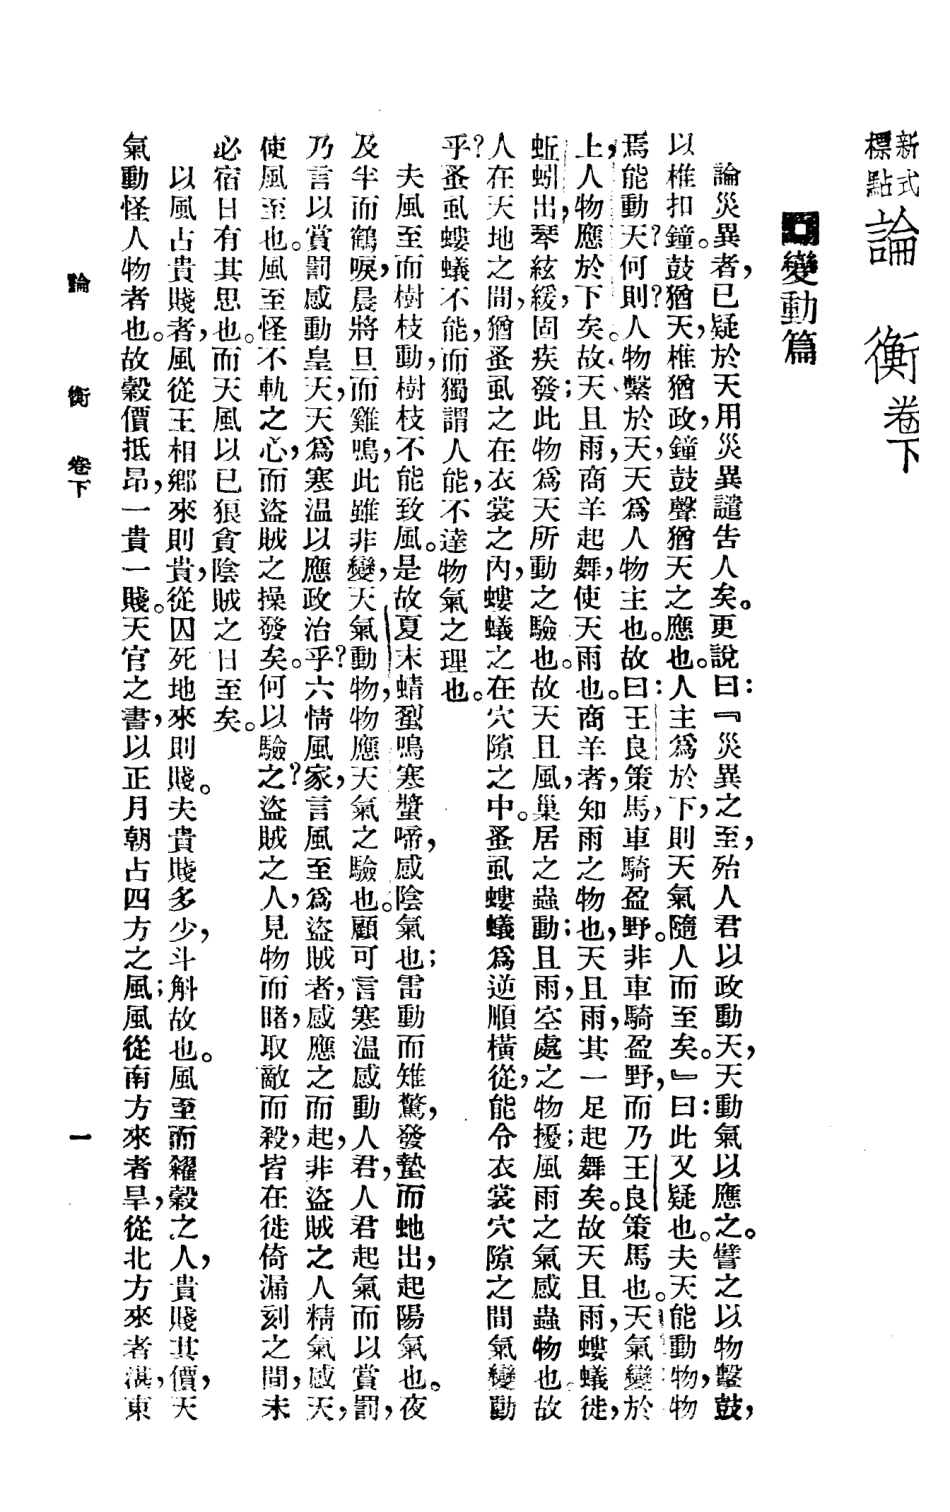 新式標點 論衡卷下
變動篇
論災異者,已疑於天用災異譴告人矣。更說曰:『災異之至,殆人君以政動天,天動氣以應之。譬之以物擊鼓,
以椎扣鐘。鼓猶天,椎猶政,鐘鼓聲猶天之應也。人主爲於下,則天氣隨人而至矣。』曰:此又疑也。夫天能動物,物
焉能動天?何則?人物繫於天,天爲人物主也。故曰:王良策馬,車騎盈野。非車騎盈野,而乃王良策馬也。天氣變於
上,人物應於下矣。故天且雨,商羊起舞,使天雨也。商羊者,知雨之物也,天且雨,其一足起舞矣。故天且雨,螻蟻徙,
蚯蚓出,琴絃緩,固疾發;此物爲天所動之驗也。故天且風,巢居之蟲動;且雨,空處之物擾;風雨之氣感蟲物也。故
人在天地之間,猶蚤虱之在衣裳之內,螻蟻之在穴隙之中。蚤虱螻蟻爲逆順橫從,能令衣裳穴隙之間氣變動
乎?蚤虱螻蟻不能,而獨謂人能,不達物氣之理也。
夫風至而樹枝動,樹枝不能致風。是故夏末蜻蛚鳴,寒螿啼,感陰氣也;雷動而雉驚,發蟄而虵出,起陽氣也。夜
及半而鶴唳,晨將旦而雞鳴,此雖非變,天氣動物,物應天氣之驗也。顧可言寒溫感動人君,人君起氣而以賞罰,
乃言以賞罰感動皇天,天爲寒溫以應政治乎?六情風家,言風至爲盜賊者,感應之而起,非盜賊之人精氣感天,
使風至也。風至怪不軌之心,而盜賊之操發矣。何以驗之?盜賊之人,見物而睹,取敵而殺,皆在徙倚漏刻之間,未
必宿日有其思也。而天風以已狼貪陰賊之日至矣。
以風占貴賤者,風從王相鄉來則貴,從囚死地來則賤。夫貴賤多少,斗斛故也。風至而糴穀之人,貴賤其價,天
氣動怪人物者也。故穀價抵昂,一貴一賤。天官之書,以正月朝占四方之風;風從南方來者旱,從北方來者湛,東
論衡 卷下 一